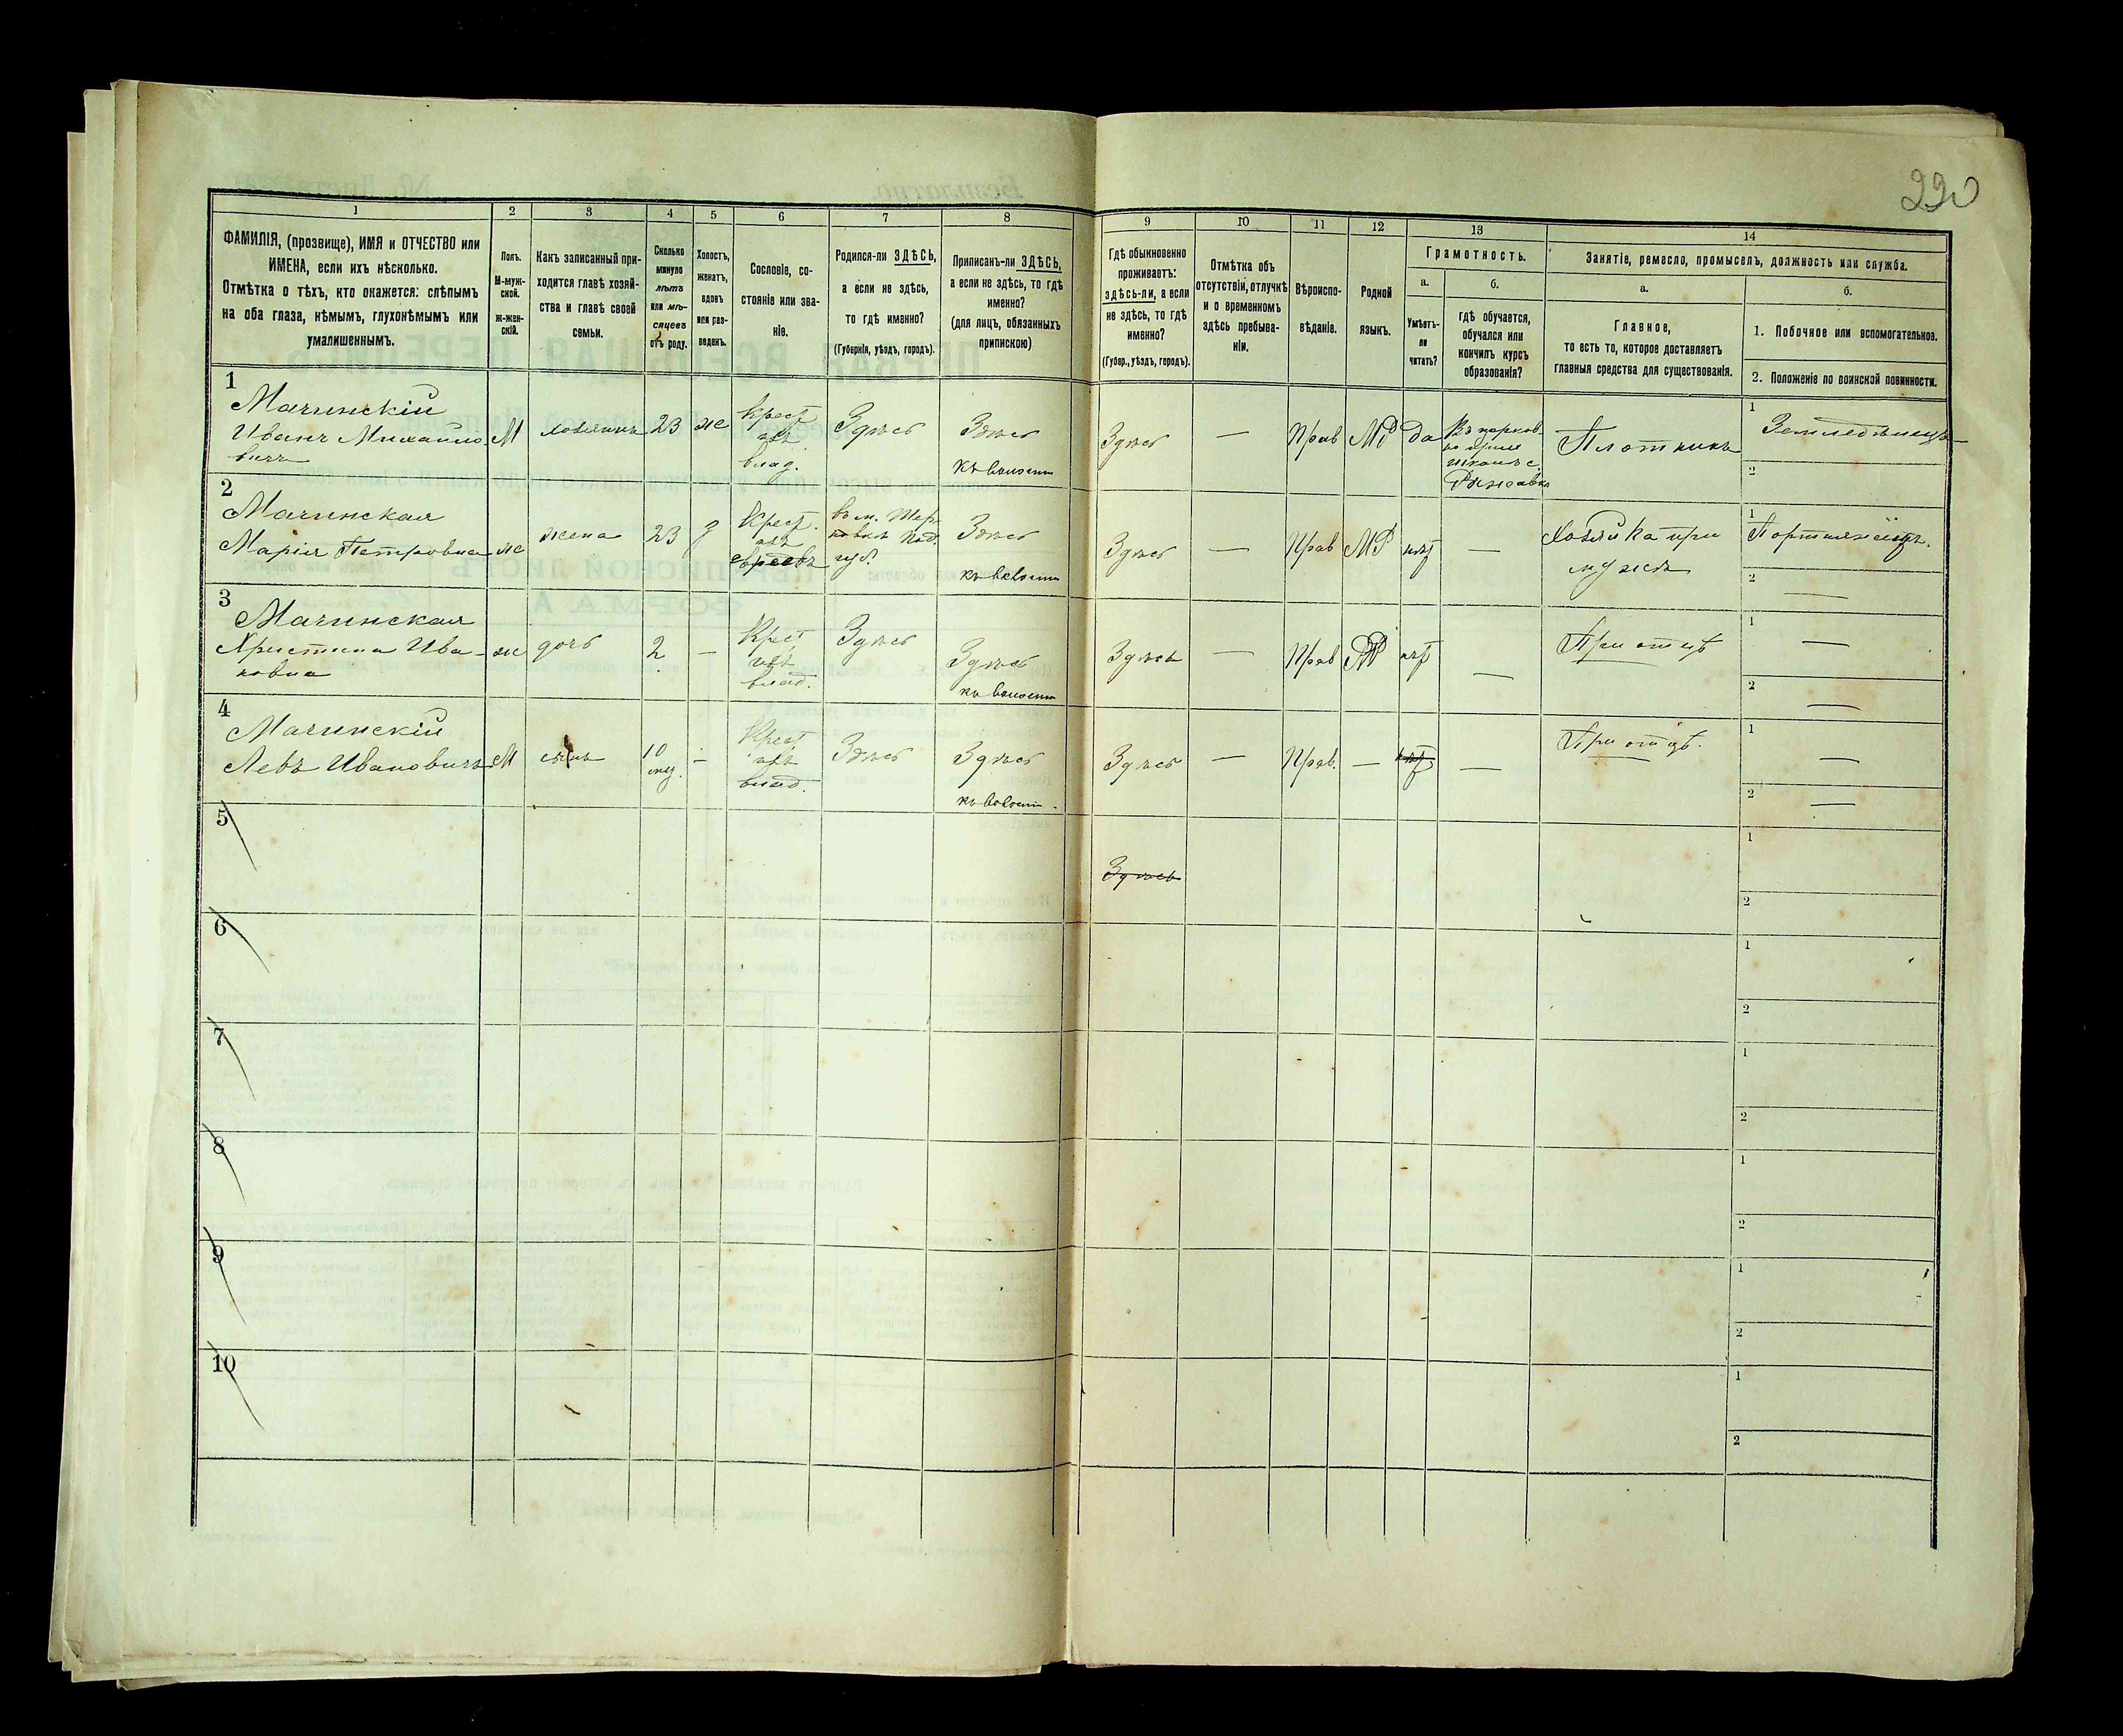 220
1
2
3
4
5
6
7
8
9
10
11
12
13
14
ФАМИЛІЯ, (прозвище), ИМЯ и ОТЧЕСТВО или
ИМЕНА, если ихъ нѣсколько.
Отмѣтка о тѣхъ, кто окажется: слѣпымъ
на оба глаза, нѣмымъ, глухонѣмымъ или
умалишеннымъ.
Полъ.
М-муж-
ской.
ж-жен-
скій.
Какъ записанный при-
ходится главѣ хозяй-
ства и главѣ своей
семьи.
Сколько
минуло
лѣтъ
или мѣ-
сяцевъ
отъ роду.
Холостъ,
женатъ,
вдовъ
или раз-
веденъ.
Сословіе, со-
стояніе или зва-
ніе.
Родился-ли ЗДѢСЬ,
а если не здѣсь,
то гдѣ именно?
(Губернія, уѣздъ, городъ).
Приписанъ-ли ЗДѢСЬ,
а если не здѣсь, то гдѣ
именно?
(для лицъ, обязанныхъ
припискою)
Гдѣ обыкновенно
проживаетъ:
здѣсь-ли, а если
не здѣсь, то гдѣ
именно?
(Губер., уѣздъ, городъ).
Отмѣтка объ
отсутствіи, отлучкѣ
и о временномъ
здѣсь пребыва-
ніи.
Вѣроиспо-
вѣданіе.
Родной
языкъ.
Грамотность.
а.
Умѣетъ-
ли
читать?
б.
гдѣ обучается,
обучался или
кончилъ курсъ
образованія?
Занятіе, ремесло, промыселъ, должность или служба.
а.
Главное,
то есть то, которое доставляетъ
главныя средства для существованія.
б.
1. Побочное или вспомогательное.
2. Положеніе по воинской повинности.
1
Мачинскій
Иванъ Михайло
вичъ
М
хозяинъ
23
ж
Крест.
изъ
влад.
Здѣсь
Здѣсь
къ волости
Здѣсь
—
Прав
МР
да
Въ церков-
но прих
школѣ с.
Плотникъ
1
Земледѣлецъ
2
2
Мачинская
Марія Петровна
ж
жена
23
з
Крест.
изъ
Под.
губ.
Здѣсь
къ волости
Здѣсь
—
Прав
МР
нѣт
—
Хозяйка при
мужѣ
1
2
—
3
Мачинская
Христина Ива-
новна
ж
дочь
2
—
Крест
изъ
влад.
Здѣсь
Здѣсь
къ волости
Здѣсь
—
Прав
МР
нѣт
—
При отцѣ
1
—
2
—
4
Мачинскій
Левъ Ивановичъ
М
сынъ
10
мц.
-
Крест
изъ
влад.
Здѣсь
Здѣсь
къ волости.
Здѣсь
—
Прав.
—
нѣт
—
При отцѣ.
1
—
2
—
5
Здѣсь
1
2
6
1
2
7
1
2
8
1
2
9
1
2
10
1
2